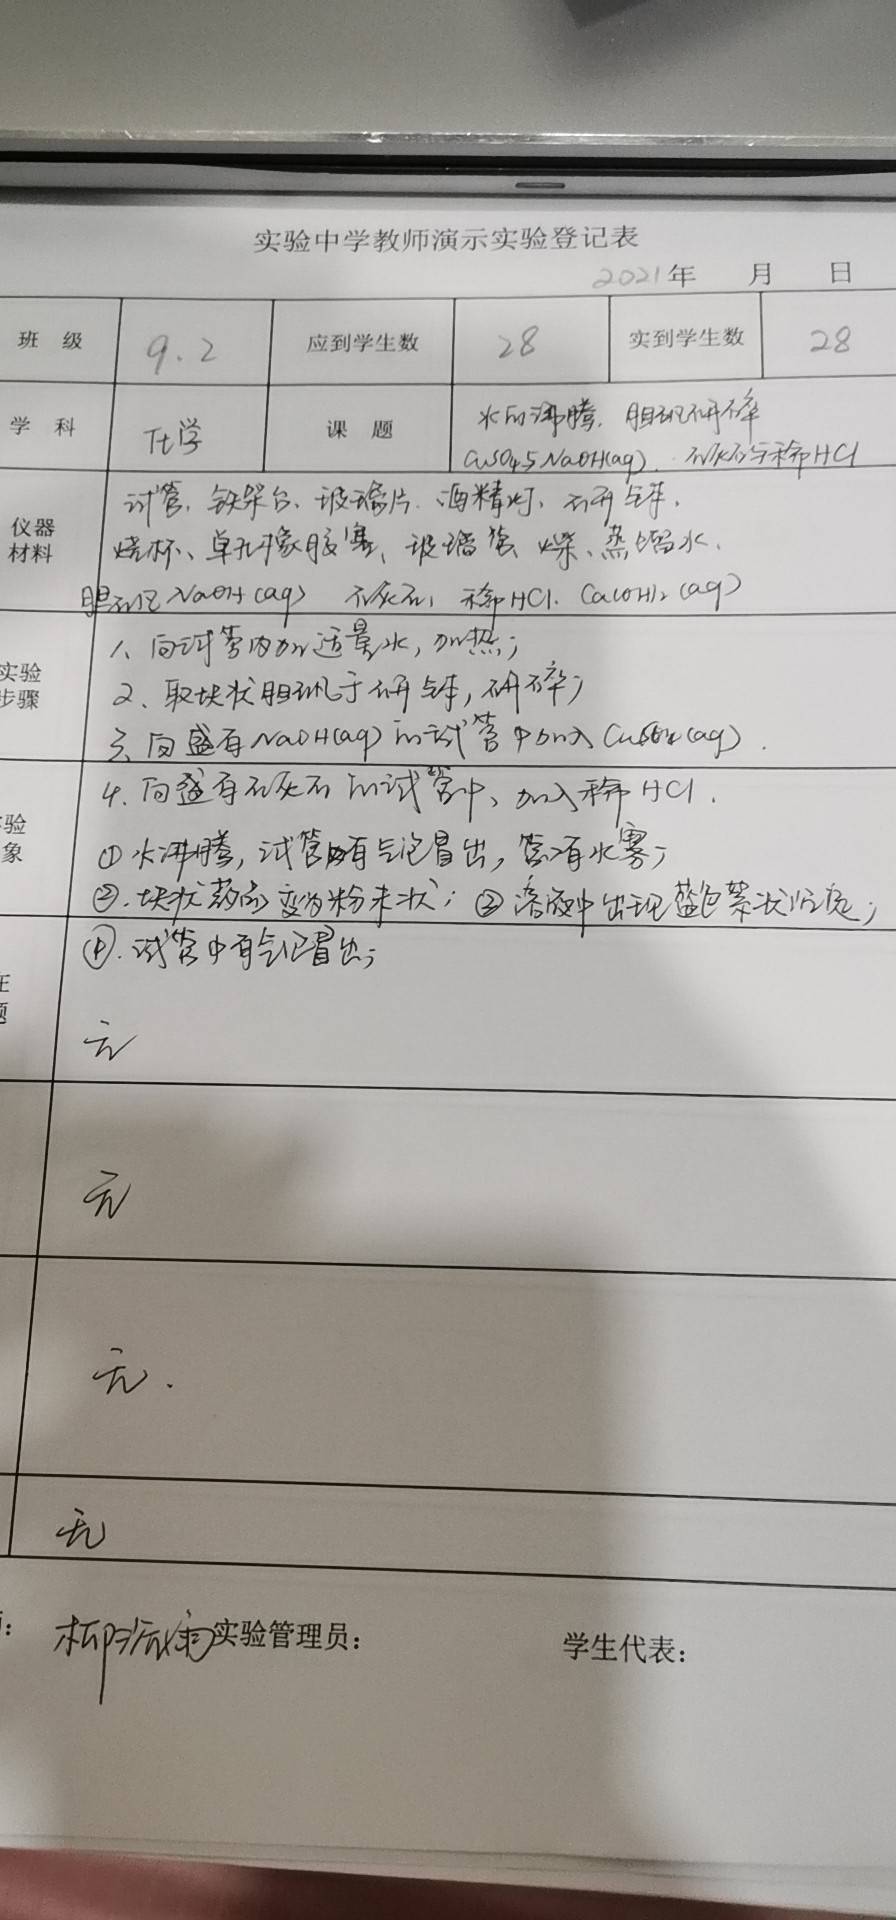 实验中学教师演示实验登记表
2021年 月 日
班 级 9.2 应到学生数 28 实到学生数 28
学 科 化学 课 题 水的沸腾. 胆矾研碎
CuSO4与NaOH(aq). 石灰石与稀HCl
仪器
材料
试管. 铁架台. 玻璃片. 酒精灯、研钵.
烧杯、单孔橡胶塞、玻璃 蒸馏水.
胆矾 NaOH(aq) 石灰石, 稀HCl. Ca(OH)2(aq)
实验
步骤
1、向试管内加适量水, 加热;
2、取块状胆矾于研钵, 研碎;
3、向盛有NaOH(aq)的试管中加入CuSO4(aq).
4. 向盛有石灰石的试管中、加入稀HCl.
验
象
① 水沸腾, 试管内有气泡冒出, 管口有水雾;
②. 块状药品变为粉末状; ③ 溶液中出现蓝色絮状沉淀;
④. 试管中有气泡冒出;
在
题
无
无
无.
无
: 实验管理员: 学生代表: